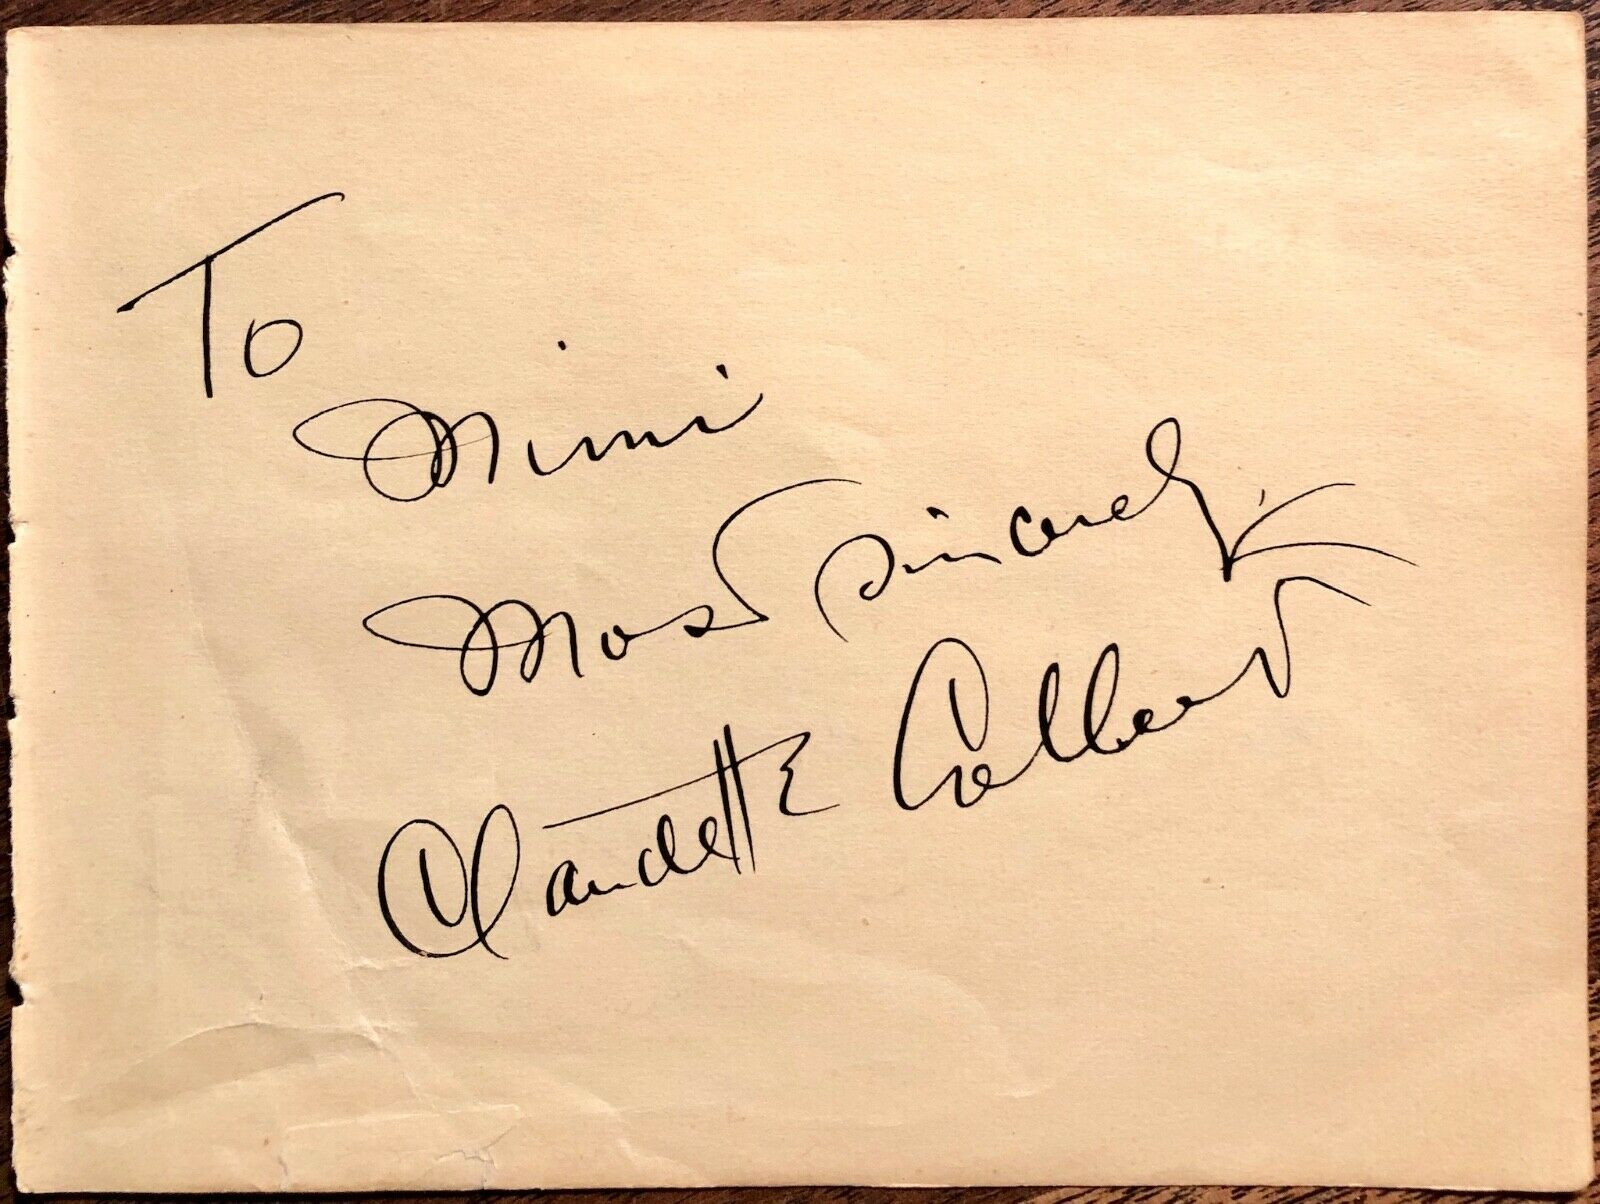 To
Mimi
Most Sincerely,
Claudette Colbert